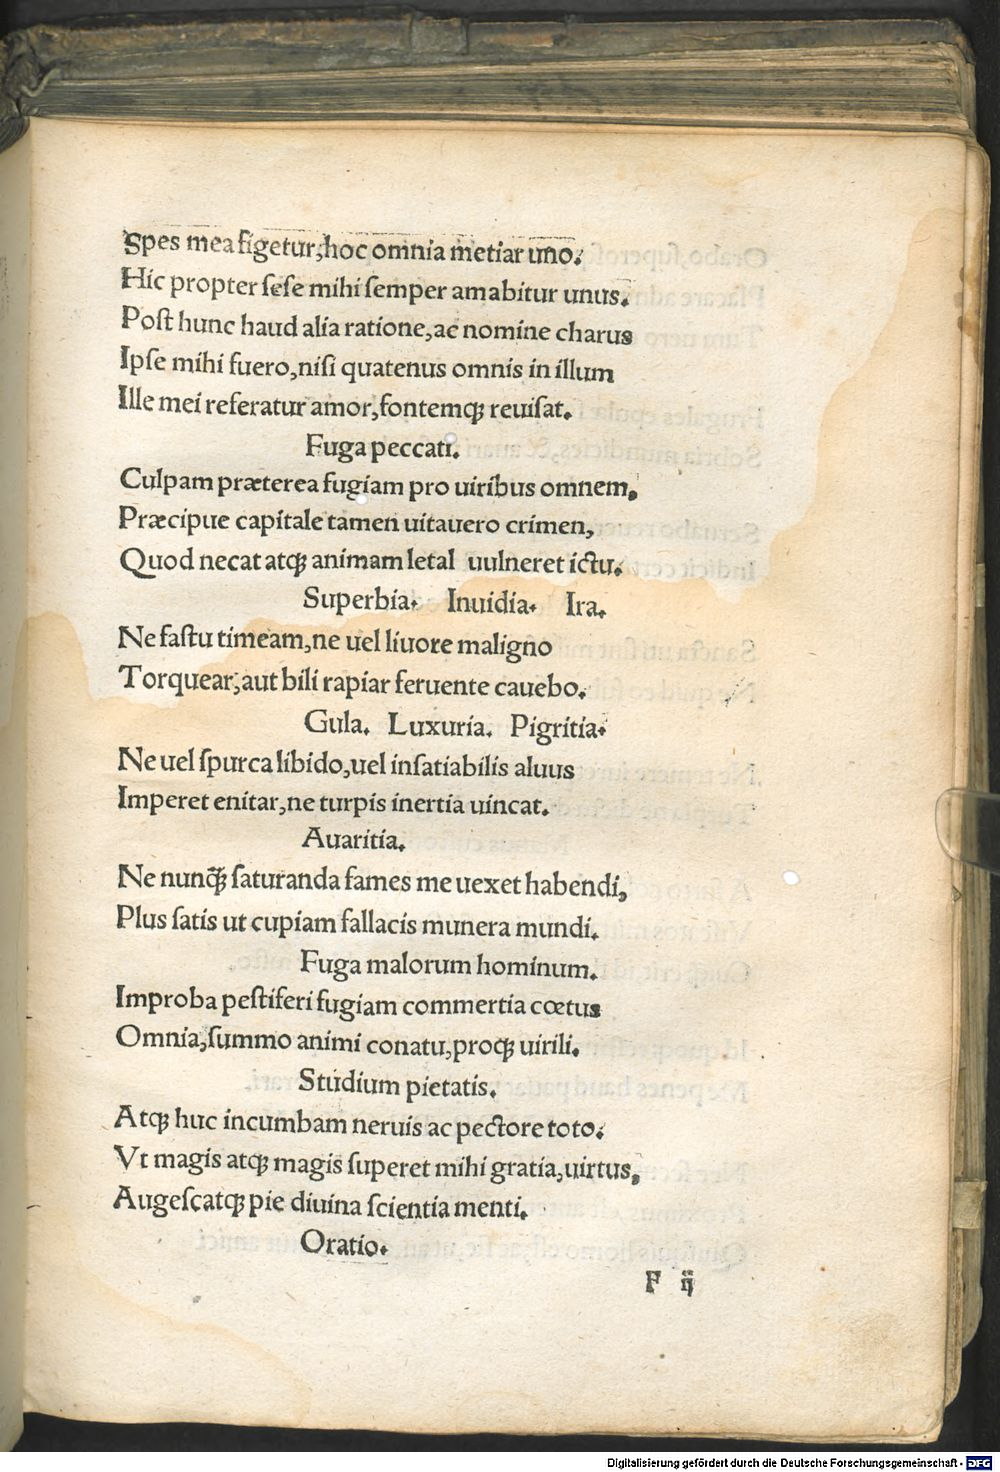 Spes mea figetur, hoc omnia metiar uno.
Hic propter sese mihi semper amabitur unus.
Post hunc haud alia ratione, ac nomine charus
Ipse mihi fuero, nisi quatenus omnis in illum
Ille mei referatur amor, fontemqꝫ reuisat.
Fuga peccati.
Culpam præterea fugiam pro uiribus omnem,
Præcipue capitale tamen uitauero crimen,
Quod necat atqꝫ animam letal uulneret ictu.
Superbia. Inuidia. Ira.
Ne fastu timeam, ne uel liuore maligno
Torquear, aut bili rapiar feruente cauebo.
Gula. Luxuria. Pigritia.
Ne uel spurca libido, uel insatiabilis aluus
Imperet enitar, ne turpis inertia uincat.
Auaritia.
Ne nunqꝫ̃ saturanda fames me uexet habendi,
Plus satis ut cupiam fallacis munera mundi.
Fuga malorum hominum.
Improba pestiferi fugiam commertia cœtus
Omnia, summo animi conatu, proqꝫ uirili.
Studium pietatis.
Atqꝫ huc incumbam neruis ac pectore toto.
Vt magis atqꝫ magis superet mihi gratia, uirtus,
Augescatqꝫ pie diuina scientia menti.
Oratio.
F ij
Digitalisierung gefördert durch die Deutsche Forschungsgemeinschaft - DFG